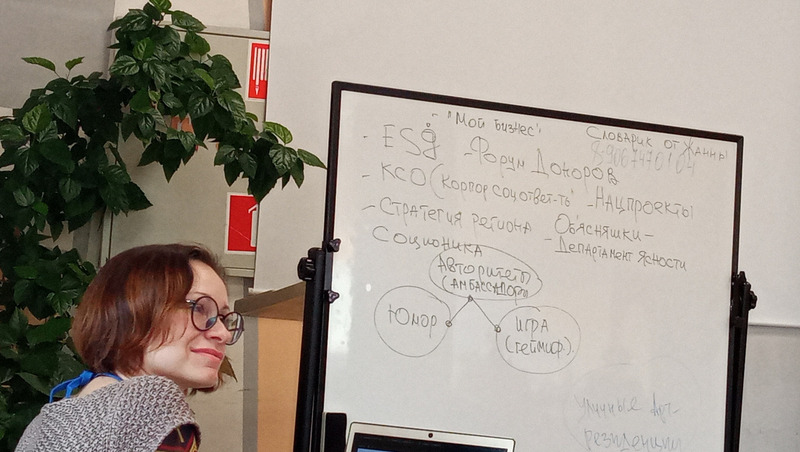 - "Мой бизнес"
Словарик от Жанны
- ESg
- Форум Доноров
- КСО (корпор соц ответ-ть
- Нацпроекты
- Стратегия региона
Объясняшки -
- Департамент ясности
Соционика
Авторитеты
(Амбассадоры
Юмор
игра
(геймиф.)
уличные Арт-
резиденции